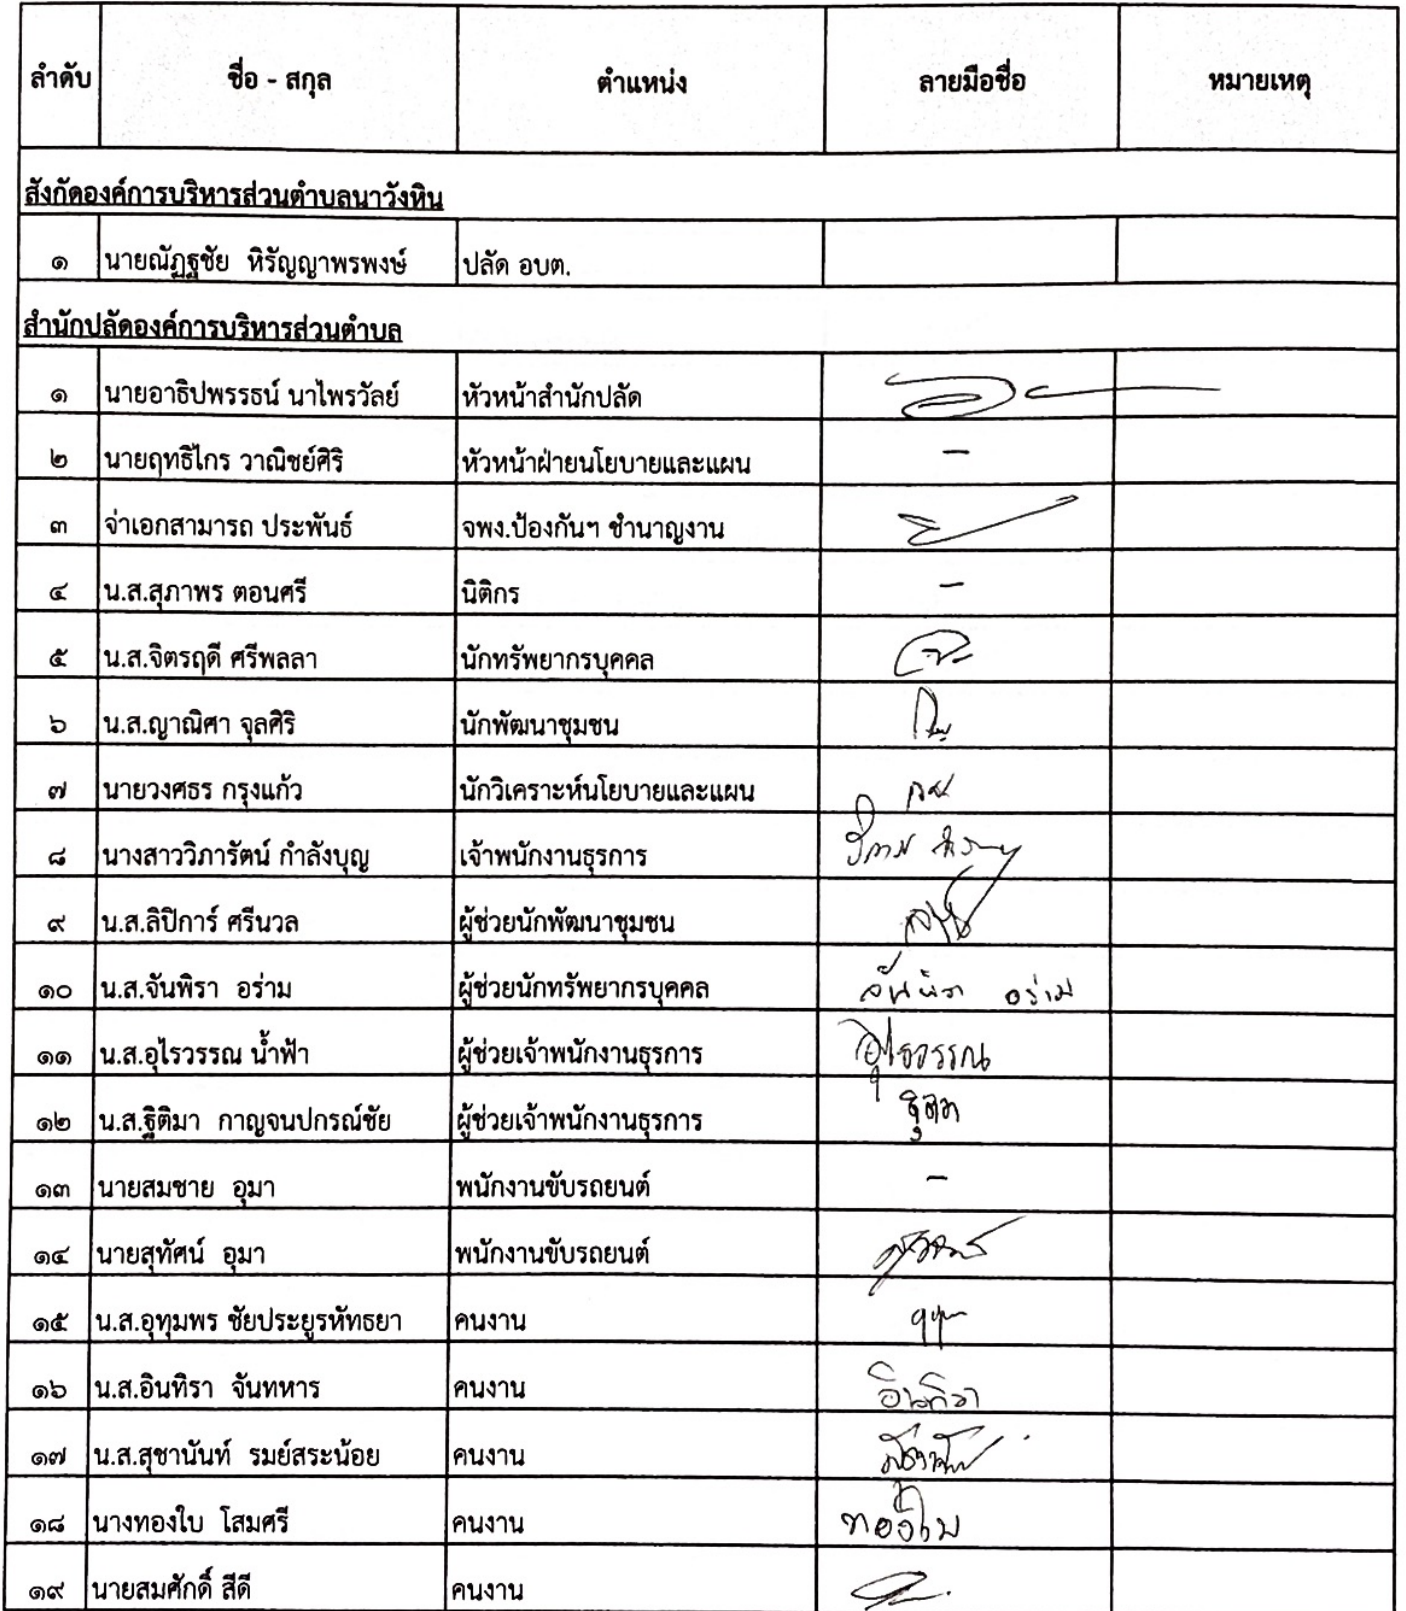 ลำดับ ชื่อ - สกุล ตำแหน่ง ลายมือชื่อ หมายเหตุ
สังกัดองค์การบริหารส่วนตำบลนาวังหิน
๑ นายณัฏฐชัย หิรัญญาพรพงษ์ ปลัด อบต.
สำนักปลัดองค์การบริหารส่วนตำบล
๑ นายอาธิปพรรธน์ นาไพรวัลย์ หัวหน้าสำนักปลัด
๒ นายฤทธิไกร วาณิชย์ศิริ หัวหน้าฝ่ายนโยบายและแผน -
๓ จ่าเอกสามารถ ประพันธ์ จพง.ป้องกันฯ ชำนาญงาน
๔ น.ส.สุภาพร ตอนศรี นิติกร -
๕ น.ส.จิตรฤดี ศรีพลลา นักทรัพยากรบุคคล
๖ น.ส.ญาณิศา จุลศิริ นักพัฒนาชุมชน
๗ นายวงศธร กรุงแก้ว นักวิเคราะห์นโยบายและแผน
๘ นางสาววิภารัตน์ กำลังบุญ เจ้าพนักงานธุรการ
๙ น.ส.ลิปิการ์ ศรีนวล ผู้ช่วยนักพัฒนาชุมชน
๑๐ น.ส.จันพิรา อร่าม ผู้ช่วยนักทรัพยากรบุคคล จันพิรา อร่าม
๑๑ น.ส.อุไรวรรณ น้ำฟ้า ผู้ช่วยเจ้าพนักงานธุรการ อุไรวรรณ
๑๒ น.ส.ฐิติมา กาญจนปกรณ์ชัย ผู้ช่วยเจ้าพนักงานธุรการ
๑๓ นายสมชาย อุมา พนักงานขับรถยนต์ -
๑๔ นายสุทัศน์ อุมา พนักงานขับรถยนต์
๑๕ น.ส.อุทุมพร ชัยประยูรหัทธยา คนงาน
๑๖ น.ส.อินทิรา จันทหาร คนงาน อินทิรา
๑๗ น.ส.สุชานันท์ รมย์สระน้อย คนงาน
๑๘ นางทองใบ โสมศรี คนงาน ทองใบ
๑๙ นายสมศักดิ์ สีดี คนงาน